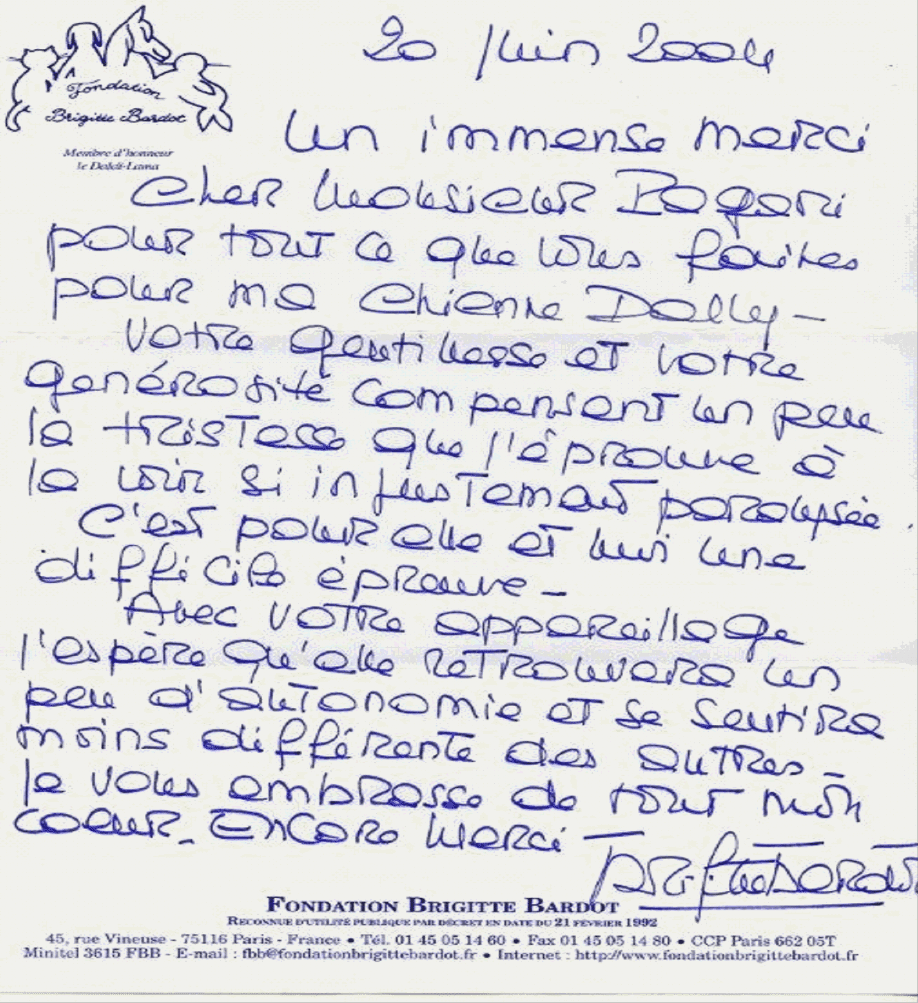 Fondation
Brigitte Bardot
Membre d'honneur
le Dalaï-Lama
20 Juin 2004
Un immense merci
cher Monsieur Bogari
pour tout ce que vous faites
pour ma chienne Dolly –
Votre gentillesse et votre
générosité compensent un peu
la tristesse que j'éprouve à
la voir si injustement paralysée.
C'est pour elle et une
difficile épreuve –
Avec votre appareillage
j'espère qu'elle retrouvera un
peu d'autonomie et se sentira
moins différente des autres –
Je vous embrasse de tout mon
coeur. Encore merci
Brigitte Bardot
FONDATION BRIGITTE BARDOT
RECONNUE D'UTILITÉ PUBLIQUE PAR DÉCRET EN DATE DU 21 FÉVRIER 1992
45, rue Vineuse - 75116 Paris - France • Tél. 01 45 05 14 60 • Fax 01 45 05 14 80 • CCP Paris 662 05T
Minitel 3615 FBB - E-mail : fbb@fondationbrigittebardot.fr • Internet : http://www.fondationbrigittebardot.fr